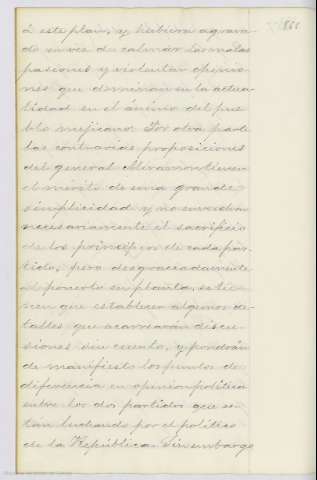 á este plan, y hubiera agrava-
do en vez de calmar las malas
pasiones y violentar opinio-
nes que dominan en la actua-
lidad en el ánimo del pue-
blo mejicano. Por otra parte
las contrarias proposiciones
del general Miramon tienen
el mérito de una grande
simplicidad y no envuelven
necesariamente el sacrificio
de los principios de cada par-
tido; pero desgraciadamente
al ponerlo en planta, se tie-
nen que establecer algunos de-
talles que acarrearán discu-
siones sin cuento, y pondrán
de manifiesto los puntos de
diferencia en opinion política
entre los dos partidos que es-
tan luchando por el político
de la República. Sin embargo